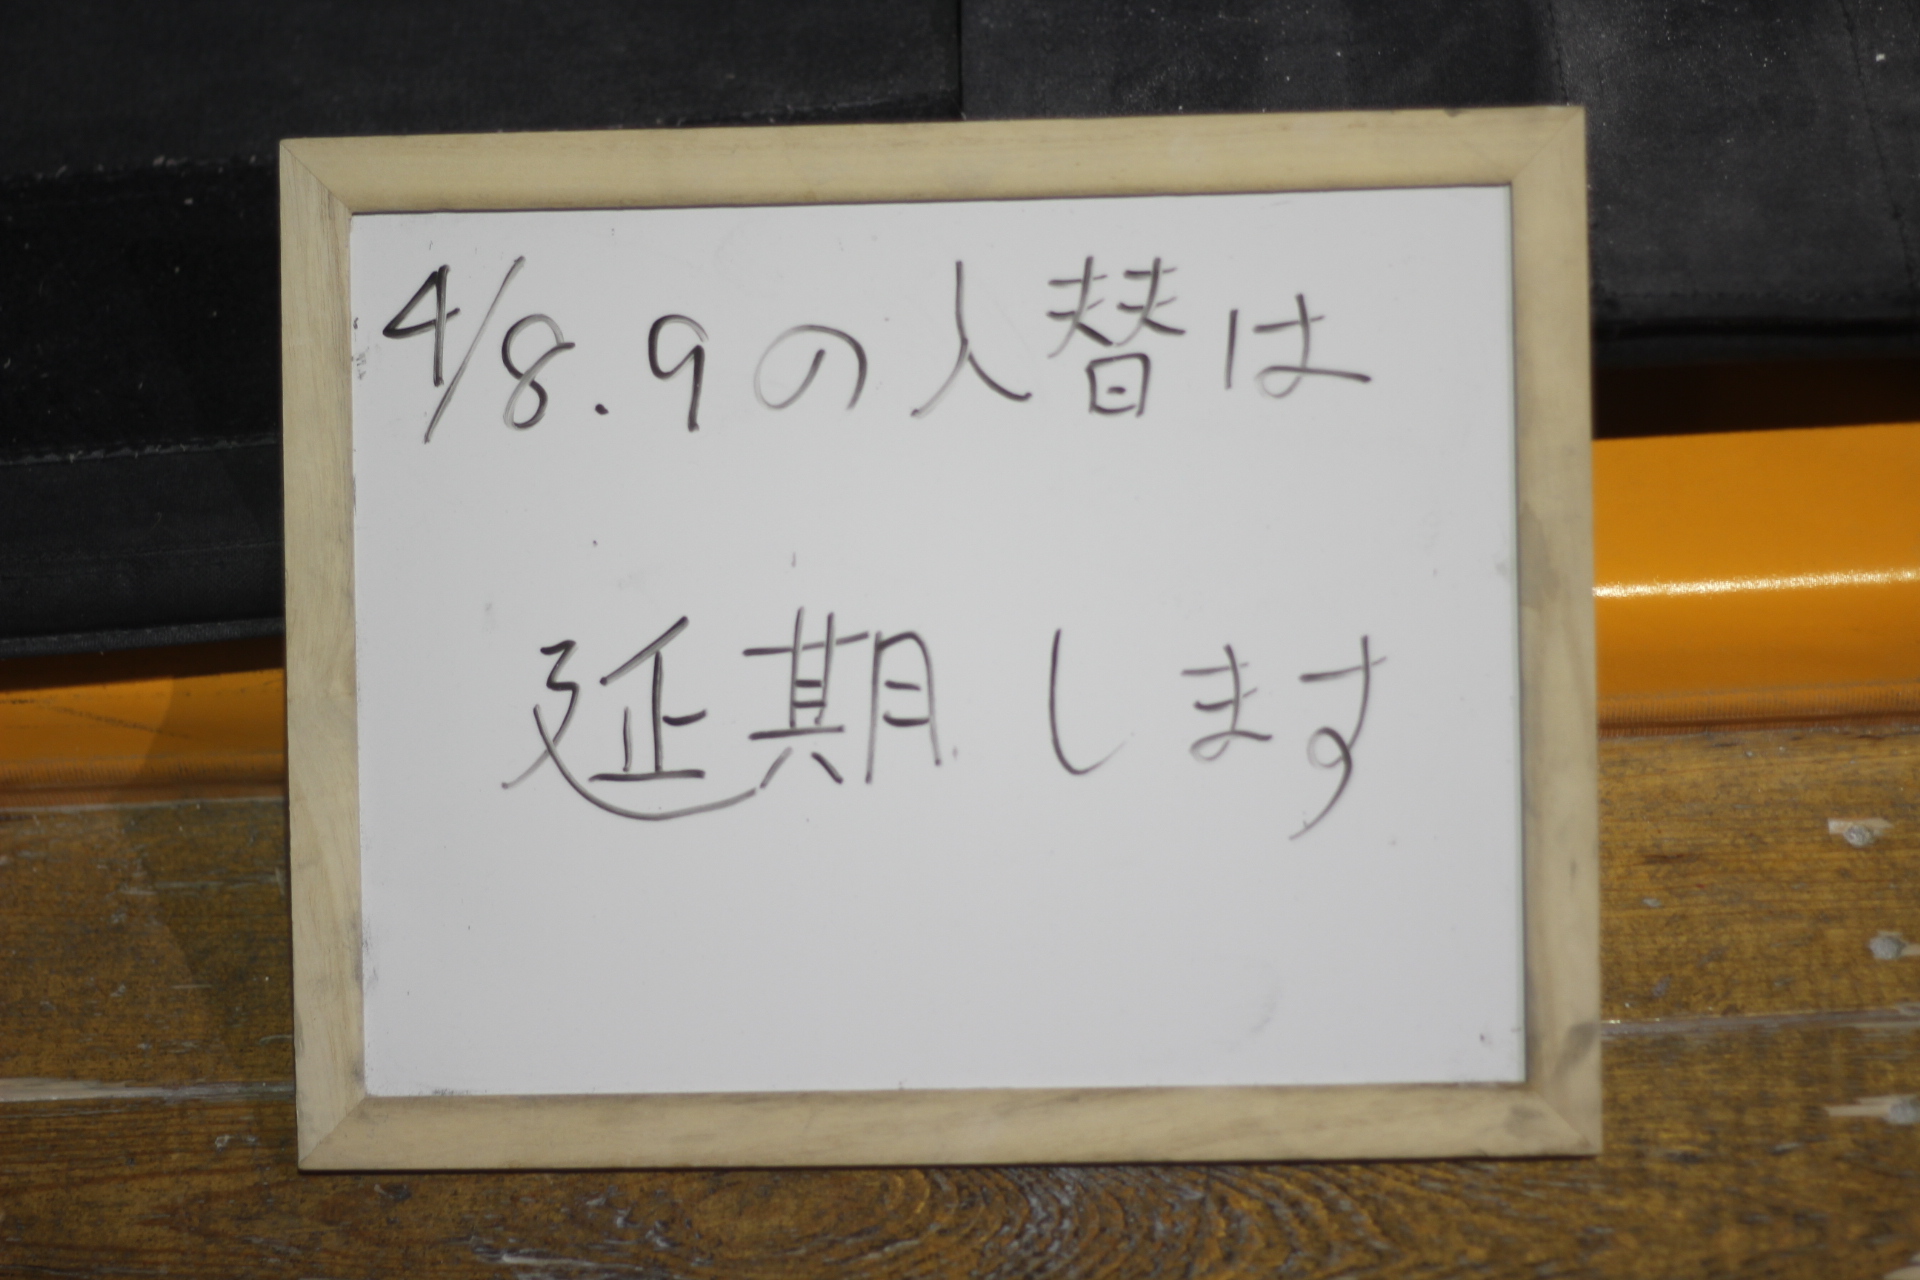 4/8.9の入替は
延期します